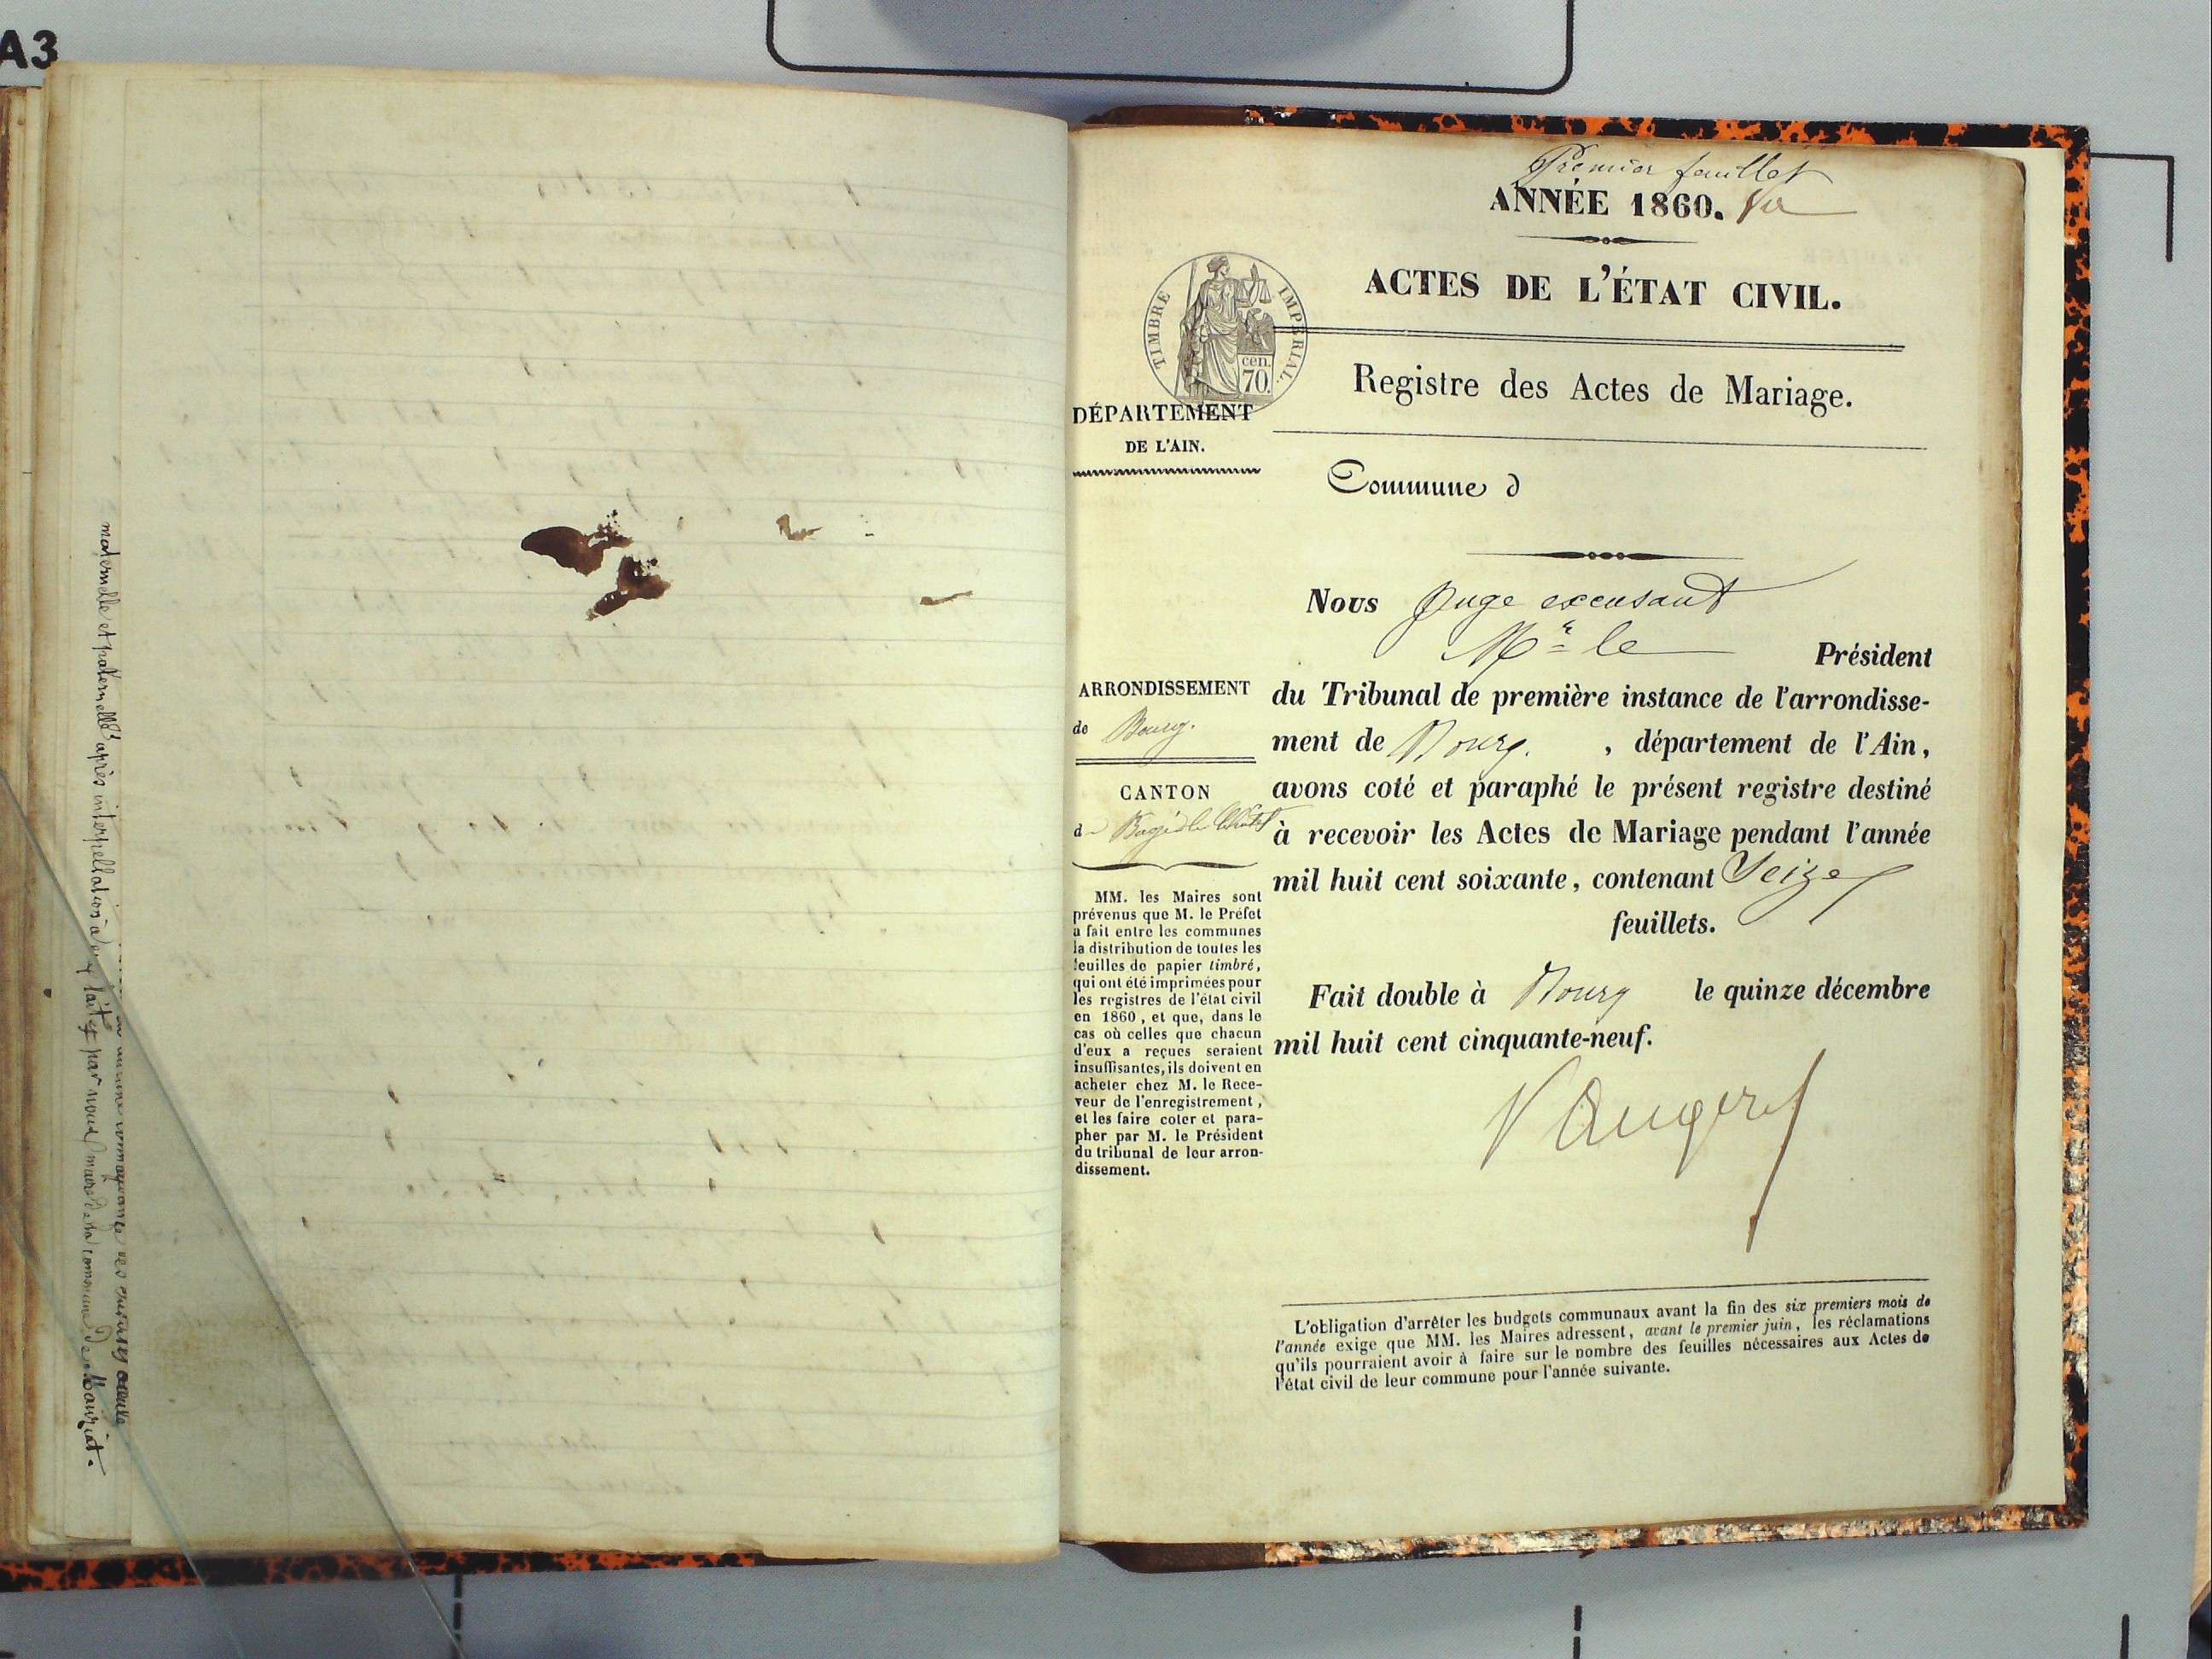 A3
maternelle et paternelle après interpellation à eux faite par nous maire de la commune de Manziat.
Premier feuillet
ANNÉE 1860.
ACTES DE L'ÉTAT CIVIL.
TIMBRE IMPÉRIAL.
cen.
70.
Registre des Actes de Mariage.
DÉPARTEMENT
DE L'AIN.
Commune d
Nous Juge excusant
Mr le Président
du Tribunal de première instance de l'arrondisse-
ment de Bourg. , département de l'Ain,
avons coté et paraphé le présent registre destiné
à recevoir les Actes de Mariage pendant l'année
mil huit cent soixante, contenant Seize
feuillets.
Fait double à Bourg le quinze décembre
mil huit cent cinquante-neuf.
ARRONDISSEMENT
de Bourg.
CANTON
d Bagé-le-Châtel
MM. les Maires sont
prévenus que M. le Préfet
a fait entre les communes
la distribution de toutes les
feuilles de papier timbré,
qui ont été imprimées pour
les registres de l'état civil
en 1860, et que, dans le
cas où celles que chacun
d'eux a reçues seraient
insuffisantes, ils doivent en
acheter chez M. le Rece-
veur de l'enregistrement,
et les faire coter et para-
pher par M. le Président
du tribunal de leur arron-
dissement.
L'obligation d'arrêter les budgets communaux avant la fin des six premiers mois de
l'année exige que MM. les Maires adressent, avant le premier juin, les réclamations
qu'ils pourraient avoir à faire sur le nombre des feuilles nécessaires aux Actes de
l'état civil de leur commune pour l'année suivante.